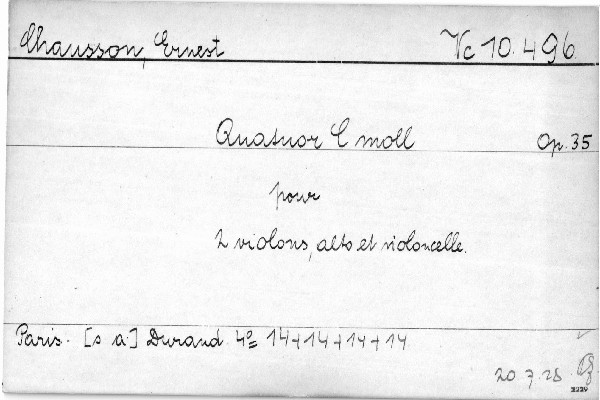 Chausson, Ernest Vc 10.496.
Quatuor C moll Op. 35
pour
2 violons, alto et violoncelle.
Paris. [s a.] Durand 4º 14+14+14+14
20.7.28
2229